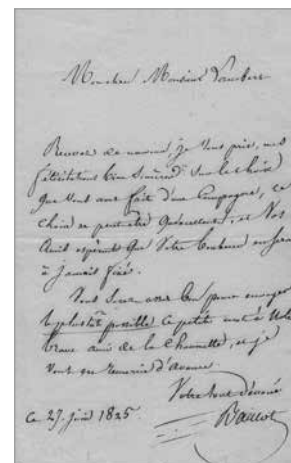 Mon cher Monsieur
Recevez de nouveau, je vous prie, mes
félicitations bien sincères sur le choix
que vous avez fait d'une Compagne, ce
choix ne peut être qu'excellent, et Vos
Amis espèrent que Votre bonheur en sera
à jamais fixé.
Vous serez assez bon pour envoyer
le plustôt possible ce petit mot à
brave ami de la Chaumette, et je
vous en remercie d'avance
Votre tout dévoué
Ce 27. juin 1825.